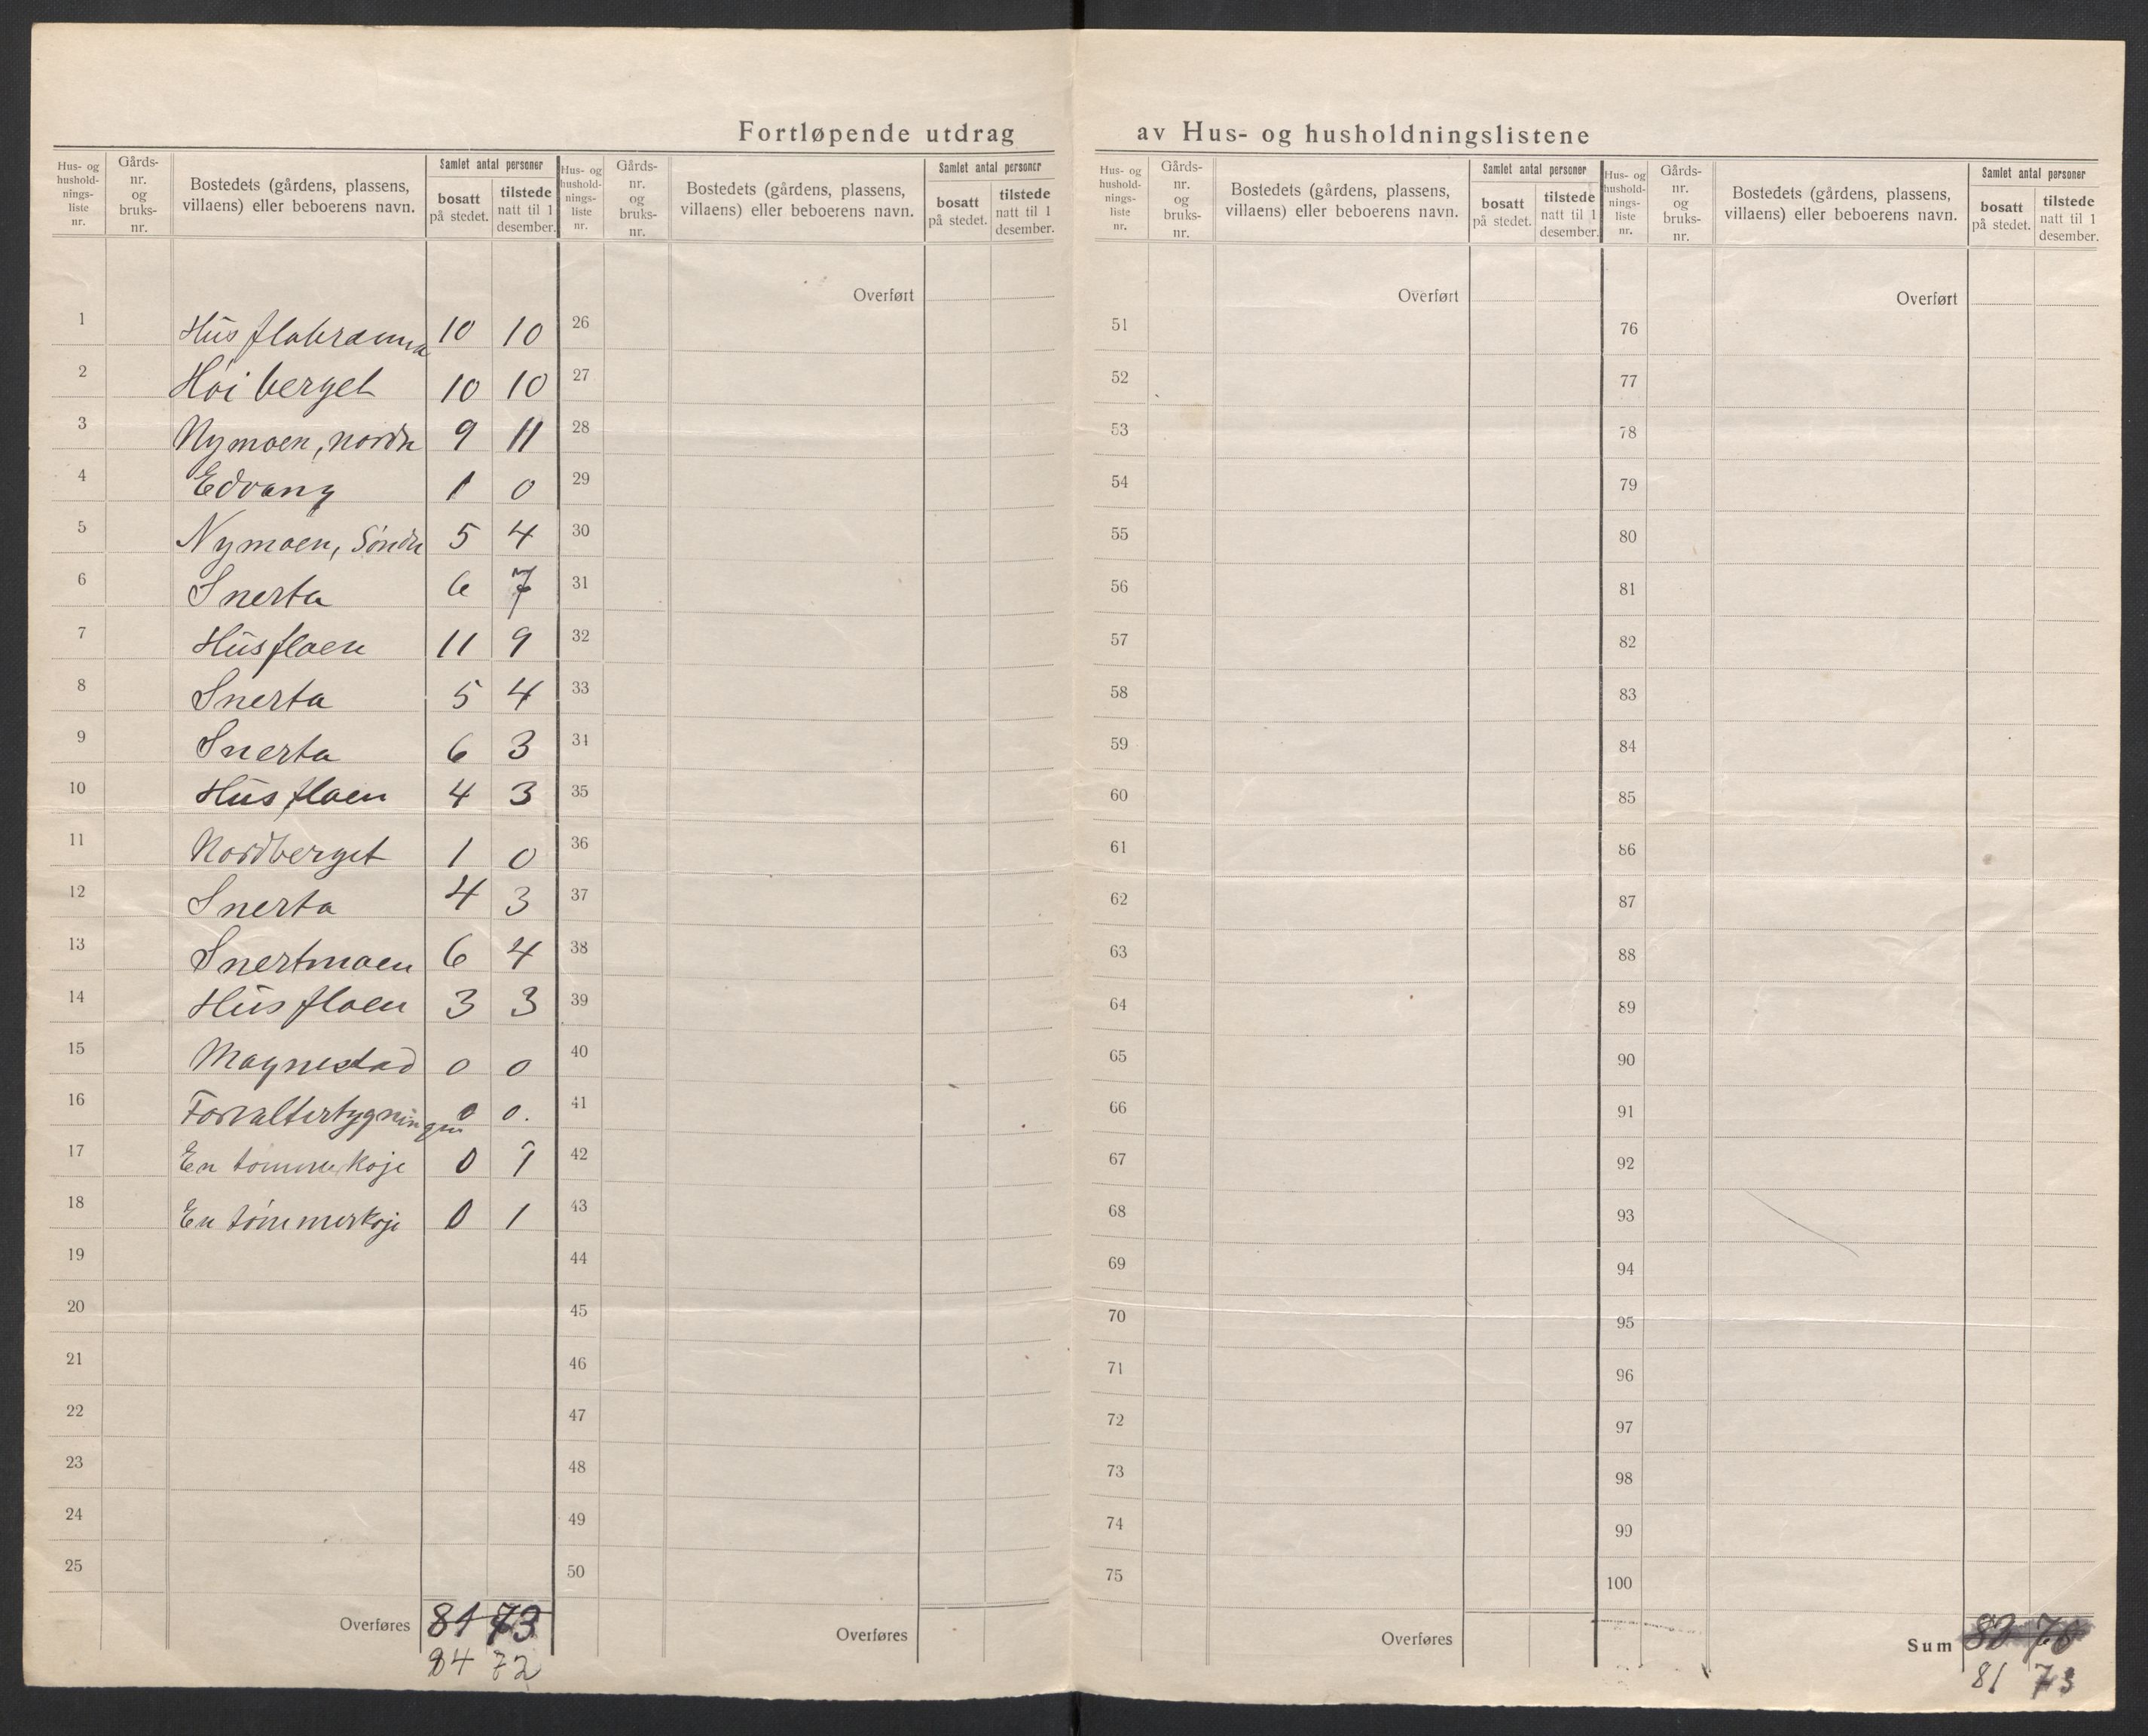 Fortløpende utdrag av Hus- og husholdningslistene
Hus- og hushold-nings-liste nr.
Gårds-nr. og bruks-nr.
Bostedets (gårdens, plassens, villaens) eller beboerens navn.
Samlet antal personer
bosatt på stedet.
tilstede natt til 1 desember.
Hus- og hushold-nings-liste nr.
Gårds-nr. og bruks-nr.
Bostedets (gårdens, plassens, villaens) eller beboerens navn.
Samlet antal personer
bosatt på stedet.
tilstede natt til 1 desember.
Hus- og hushold-nings-liste nr.
Gårds-nr. og bruks-nr.
Bostedets (gårdens, plassens, villaens) eller beboerens navn.
Samlet antal personer
bosatt på stedet.
tilstede natt til 1 desember.
Hus- og hushold-nings-liste nr.
Gårds-nr. og bruks-nr.
Bostedets (gårdens, plassens, villaens) eller beboerens navn.
Samlet antal personer
bosatt på stedet.
tilstede natt til 1 desember.
Overført Overført Overført
1 10 10 26 51 76
2 Høiberget 10 10 27 52 77
3 Nymoen, nordre 9 11 28 53 78
4 Edvang 1 0 29 54 79
5 Nymoen, Søndre 5 4 30 55 80
6 Snerta 6 7 31 56 81
7 Husfloen 11 9 32 57 82
8 Snerta 5 4 33 58 83
9 Snerta 6 3 34 59 84
10 Husfloen 4 3 35 60 85
11 Nordberget 1 0 36 61 86
12 Snerta 4 3 37 62 87
13 Snertmoen 6 4 38 63 88
14 Husfloen 3 3 39 64 89
15 Magnestad 0 0 40 65 90
16 Forvalterbygningen 0 0. 41 66 91
17 En tømmerkoje 0 1 42 67 92
18 En tømmerkoje 0 1 43 68 93
19 44 69 94
20 45 70 95
21 46 71 96
22 47 72 97
23 48 73 98
24 49 74 99
25 50 75 100
Overføres 81 73 Overføres Overføres Sum
72 81 73